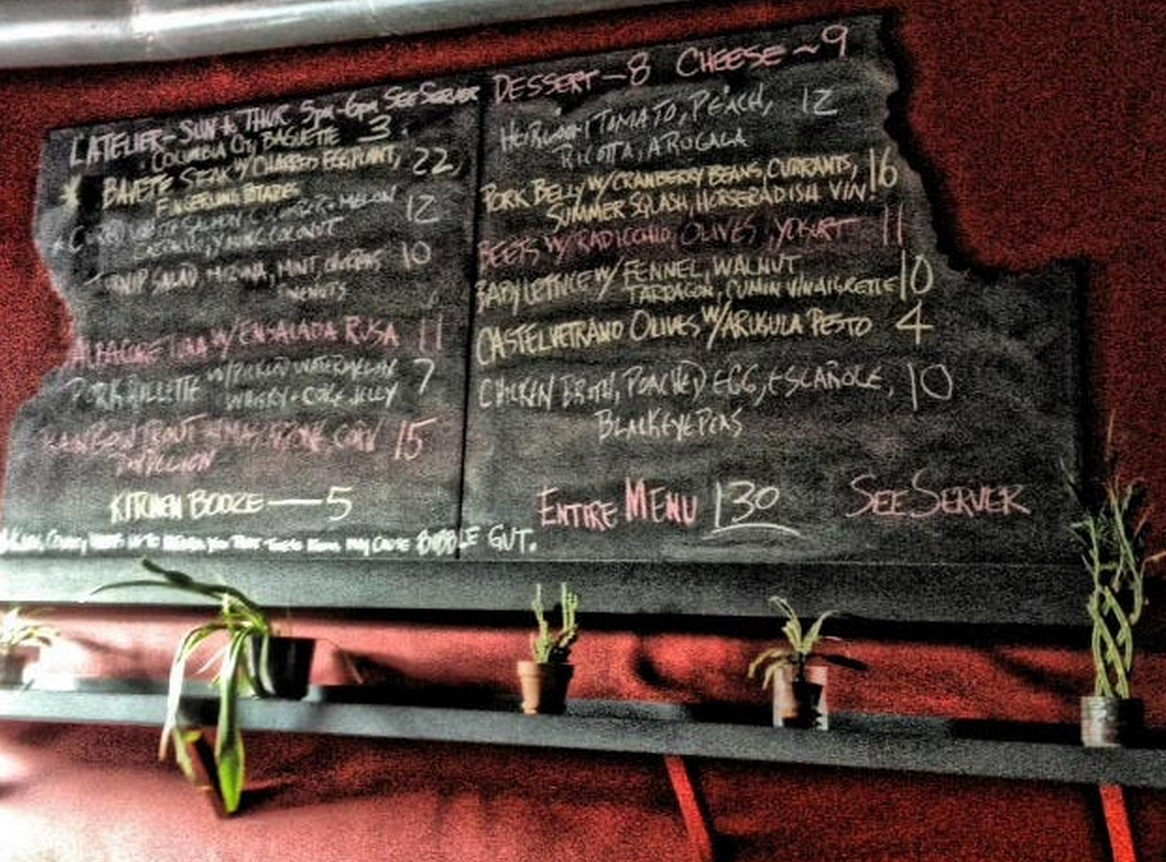 L'ATELIER - SUN to THUR 5pm-6pm SEE SERVER
COLUMBIA CITY BAGUETTE 3
BAVETTE STEAK W/ CHARRED EGGPLANT, 22
FINGERLING
MELON 12
COCONUT
SALAD, MIZUNA, MINT, 10
W/ ENSALADA RUSA 11
PORK RILLETTE W/ PICKLED WATERMELON 7
WHISKY + COKE JELLY
TROUT CORN 15
KITCHEN BOOZE — 5
US TO YOU THAT THESE ITEMS MAY CAUSE BUBBLE GUT.
DESSERT - 8 CHEESE ~ 9
HEIRLOOM TOMATO, PEACH, 12
RICOTTA, ARUGALA
PORK BELLY W/ CRANBERRY BEANS, CURRANTS, 16
SUMMER SQUASH, HORSERADISH VIN
BEETS W/ RADICCHIO, OLIVES, YOGURT 11
BABY LETTUCE W/ FENNEL, WALNUT, 10
TARRAGON, CUMIN VINAIGRETTE
CASTELVETRANO OLIVES W/ ARUGULA PESTO 4
CHICKEN BROTH, POACHED EGG, ESCAROLE, 10
BLACKEYE PEAS
ENTIRE MENU 130 SEE SERVER